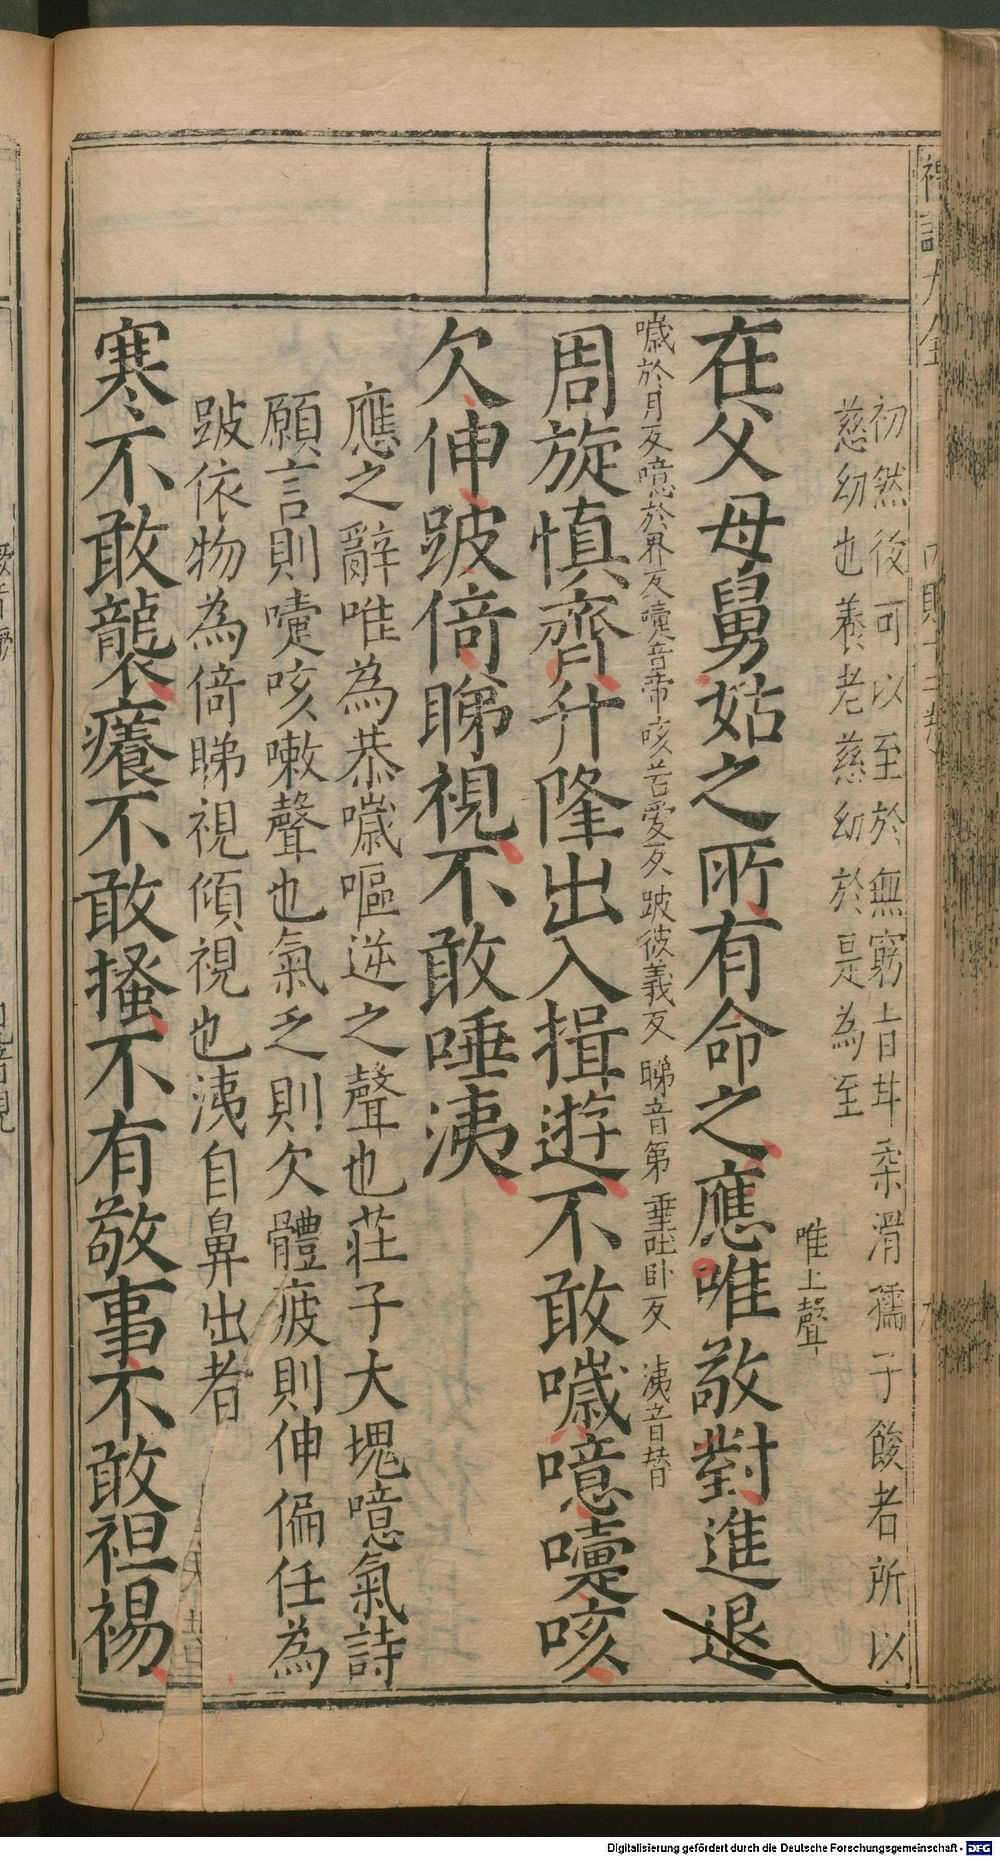 初然後可以至於無窮旨甘柔滑孺子餕者所以
慈幼也養老慈幼於是為至
唯上聲
在父母舅姑之所有命之應唯敬對進退
噦於月反噫於界反嚏音帝咳苦愛反跛彼義反睇音第唾吐卧反洟音替
周旋慎齊升降出入揖遊不敢噦噫嚏咳
欠伸跛倚睇視不敢唾洟
應之辭唯為恭噦嘔逆之聲也莊子大塊噫氣詩
願言則嚏咳嗽聲也氣乏則欠體疲則伸偏任為
跛依物為倚睇視傾視也洟自鼻出者
寒不敢襲癢不敢搔不有敬事不敢袒裼
Digitalisierung gefördert durch die Deutsche Forschungsgemeinschaft - DFG